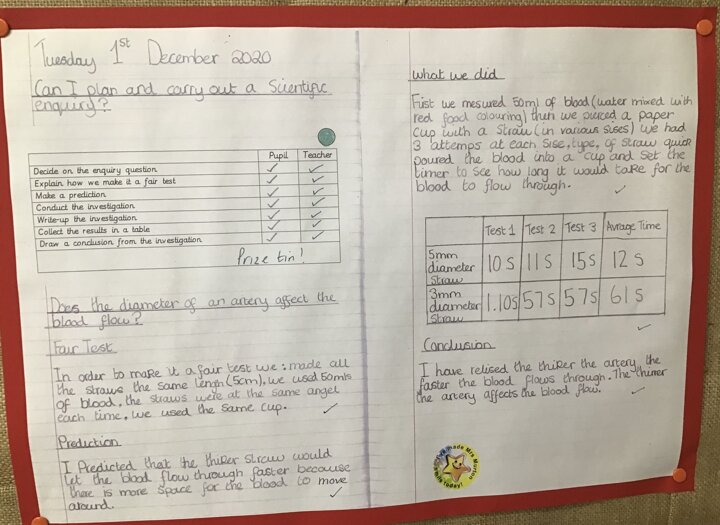 Tuesday 1st December 2020
Can I plan and carry out a Scientific
enquiry?
Pupil Teacher
Decide on the enquiry question ✓ ✓
Explain how we make it a fair test ✓ ✓
Make a prediction ✓ ✓
Conduct the investigation ✓ ✓
Write-up the investigation ✓ ✓
Collect the results in a table ✓ ✓
Draw a conclusion from the investigation ✓ ✓
Prize tin!
Does the diameter of an artery affect the
blood flow?
Fair Test
In order to make it a fair test we : made all
the straws the same lengh (5cm), we used 50mls
of blood, the straws were at the same angel
each time, we used the same cup.
Prediction
I Predicted that the thiker straw would
let the blood flow through faster because
there is more space for the blood to move
around.
What we did
First we mesured 50ml of blood (water mixed with
red food colouring) then we pierced a paper
cup with a straw (in various sises) we had
3 attemps at each sise, type, of straw quick
poured the blood into a cup and set the
timer to see how long it would take for the
blood to flow through.
Test 1 Test 2 Test 3 Avrage Time
5mm
diameter
straw
10 s 11 s 15 s 12 s
3mm
diameter
straw
1.10s 57s 57s 61 s
Conclusion
I have relised the thiker the artery the
faster the blood flows through. The thinner
the artery affects the blood flow.
I've made Mrs
smile today!